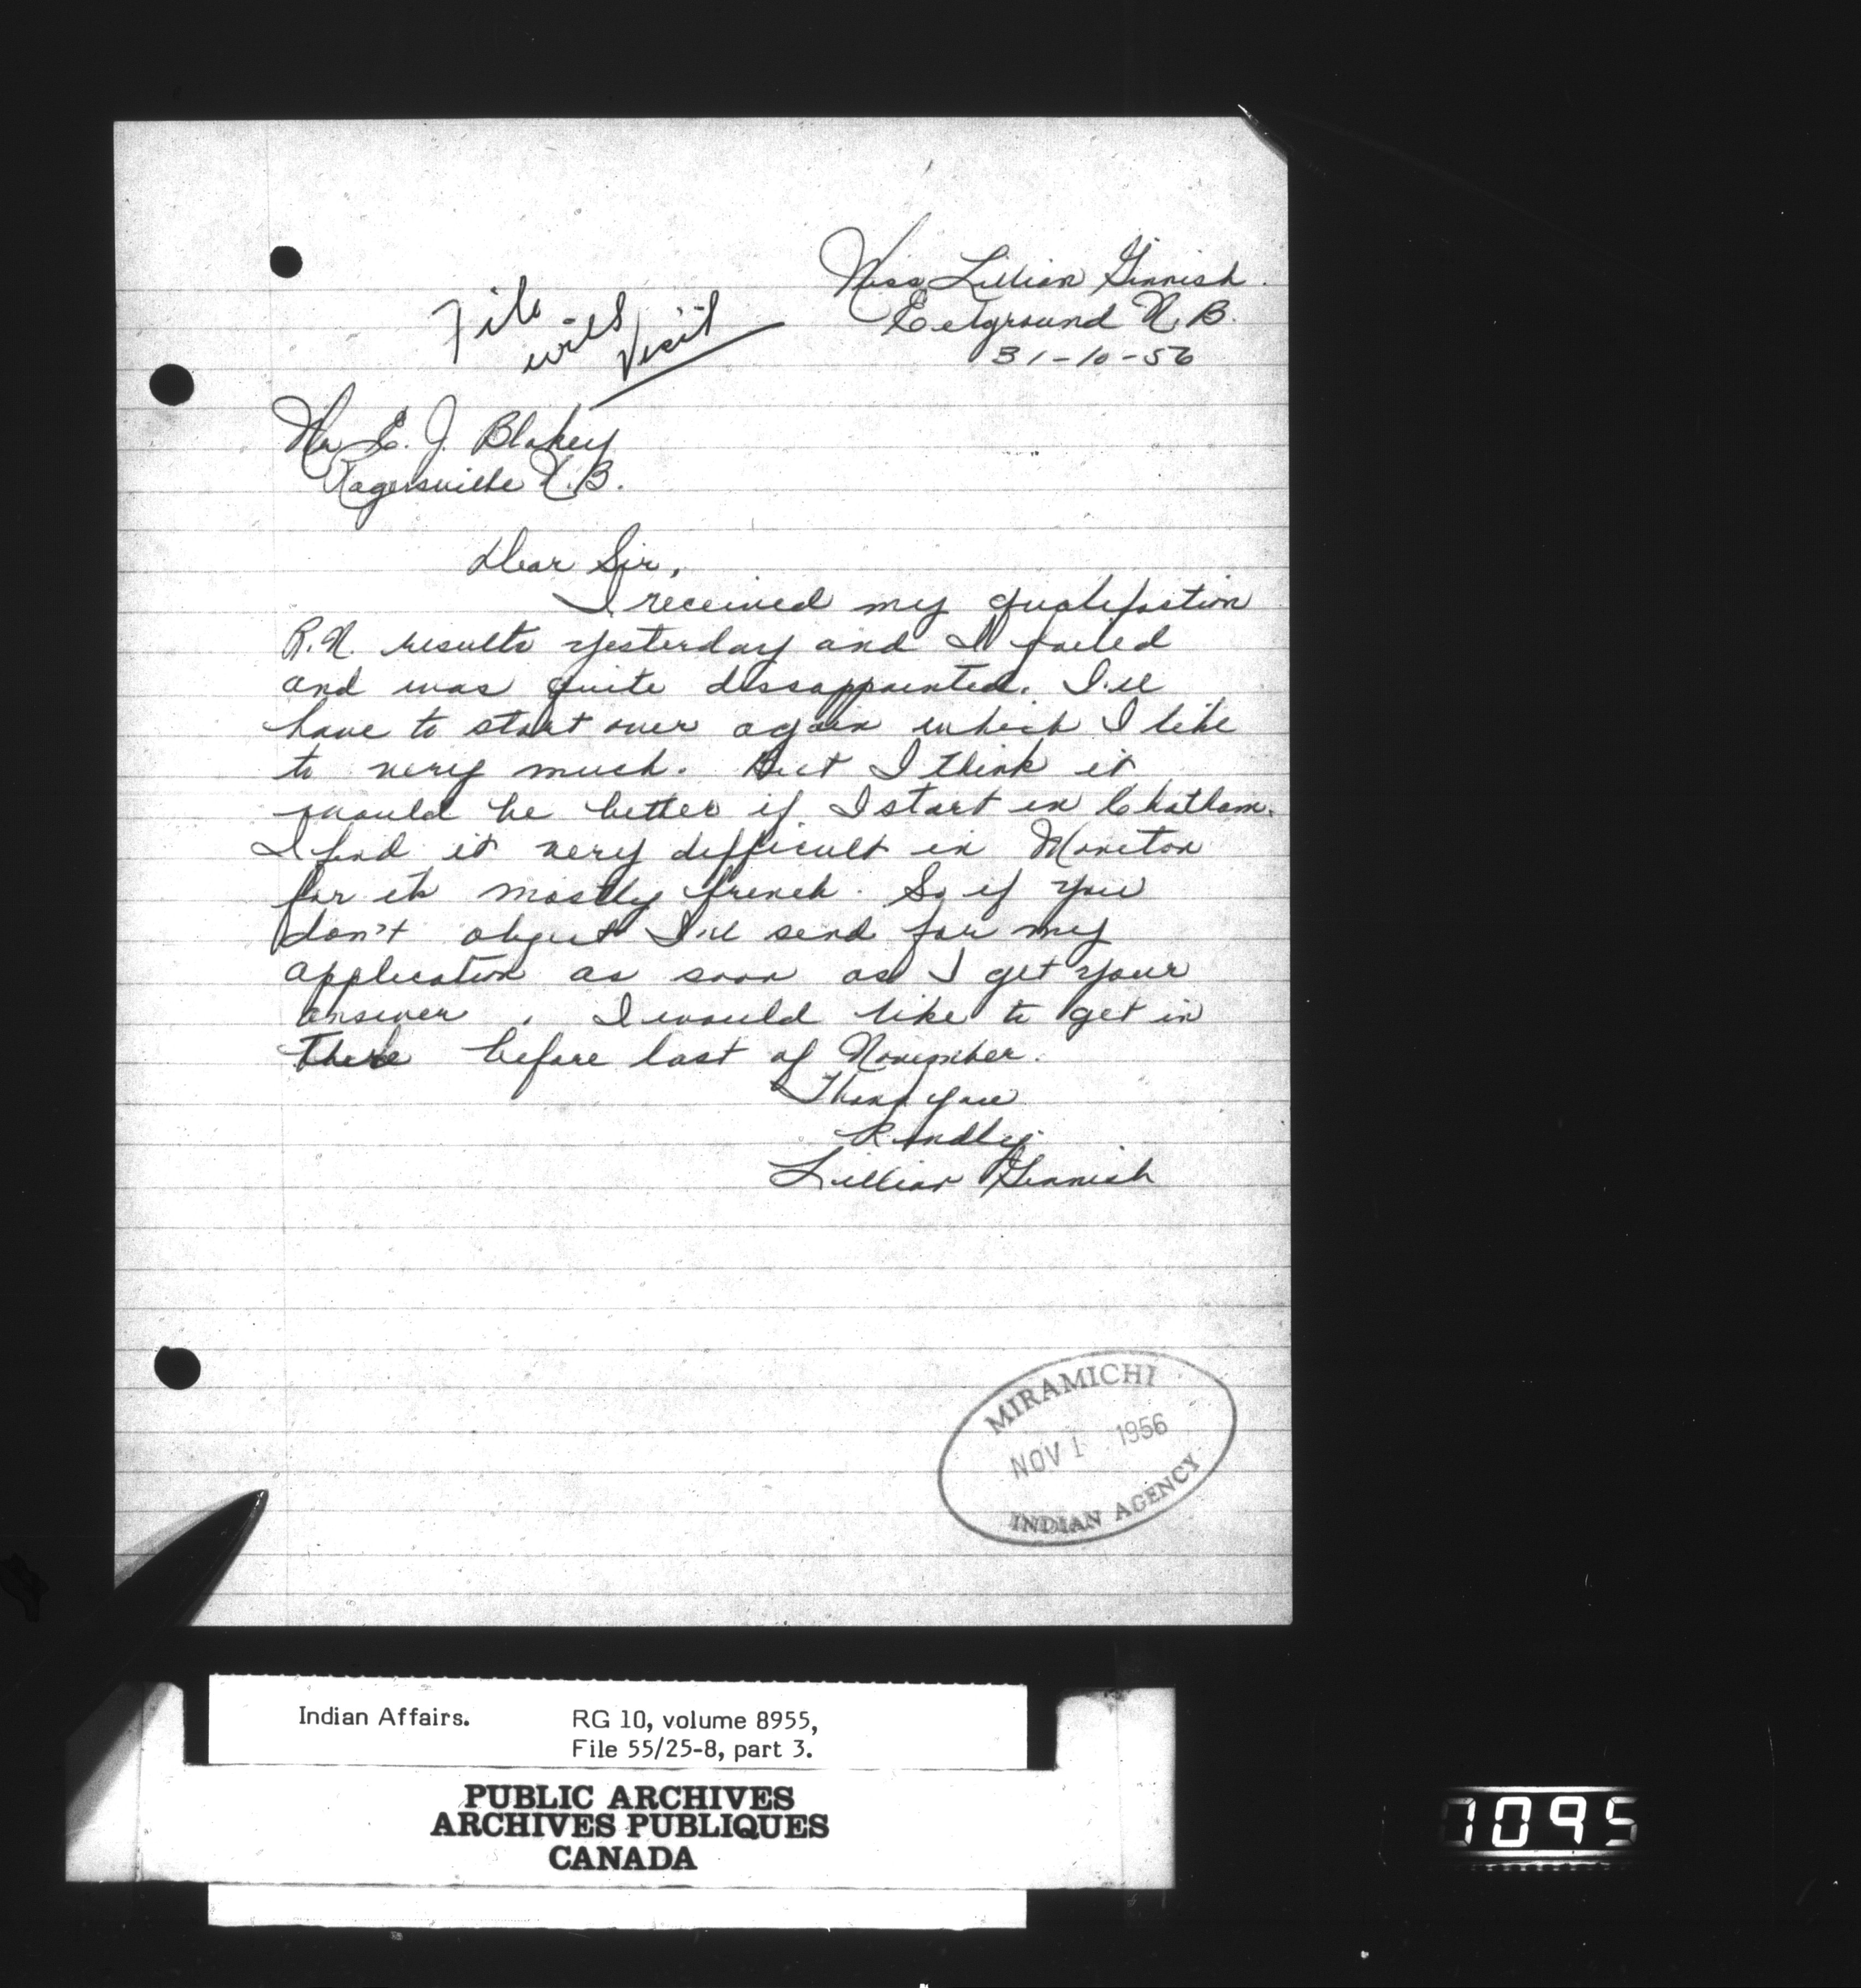 Miss Lillian Ginnish.
Eelground N.B.
31-10-56
File
will
visit
Mr E. J. Blakey
Rogersville N.B.
Dear Sir,
I received my qualifation
R.N. results yesterday and I failed
and was quite dissappointed. I'll
have to start over again which I like
to very much. But I think it
would be better if I start in Chatham.
I find it very difficult in Moncton
for its mostly french. So if you
don't object I'll send for my
application as soon as I get your
answer. I would like to get in
there before last of November.
Thank you
Kindly
Lillian Ginnish
MIRAMICHI
NOV 1 1956
INDIAN AGENCY
Indian Affairs. RG 10, volume 8955,
File 55/25-8, part 3.
PUBLIC ARCHIVES
ARCHIVES PUBLIQUES
CANADA
1095